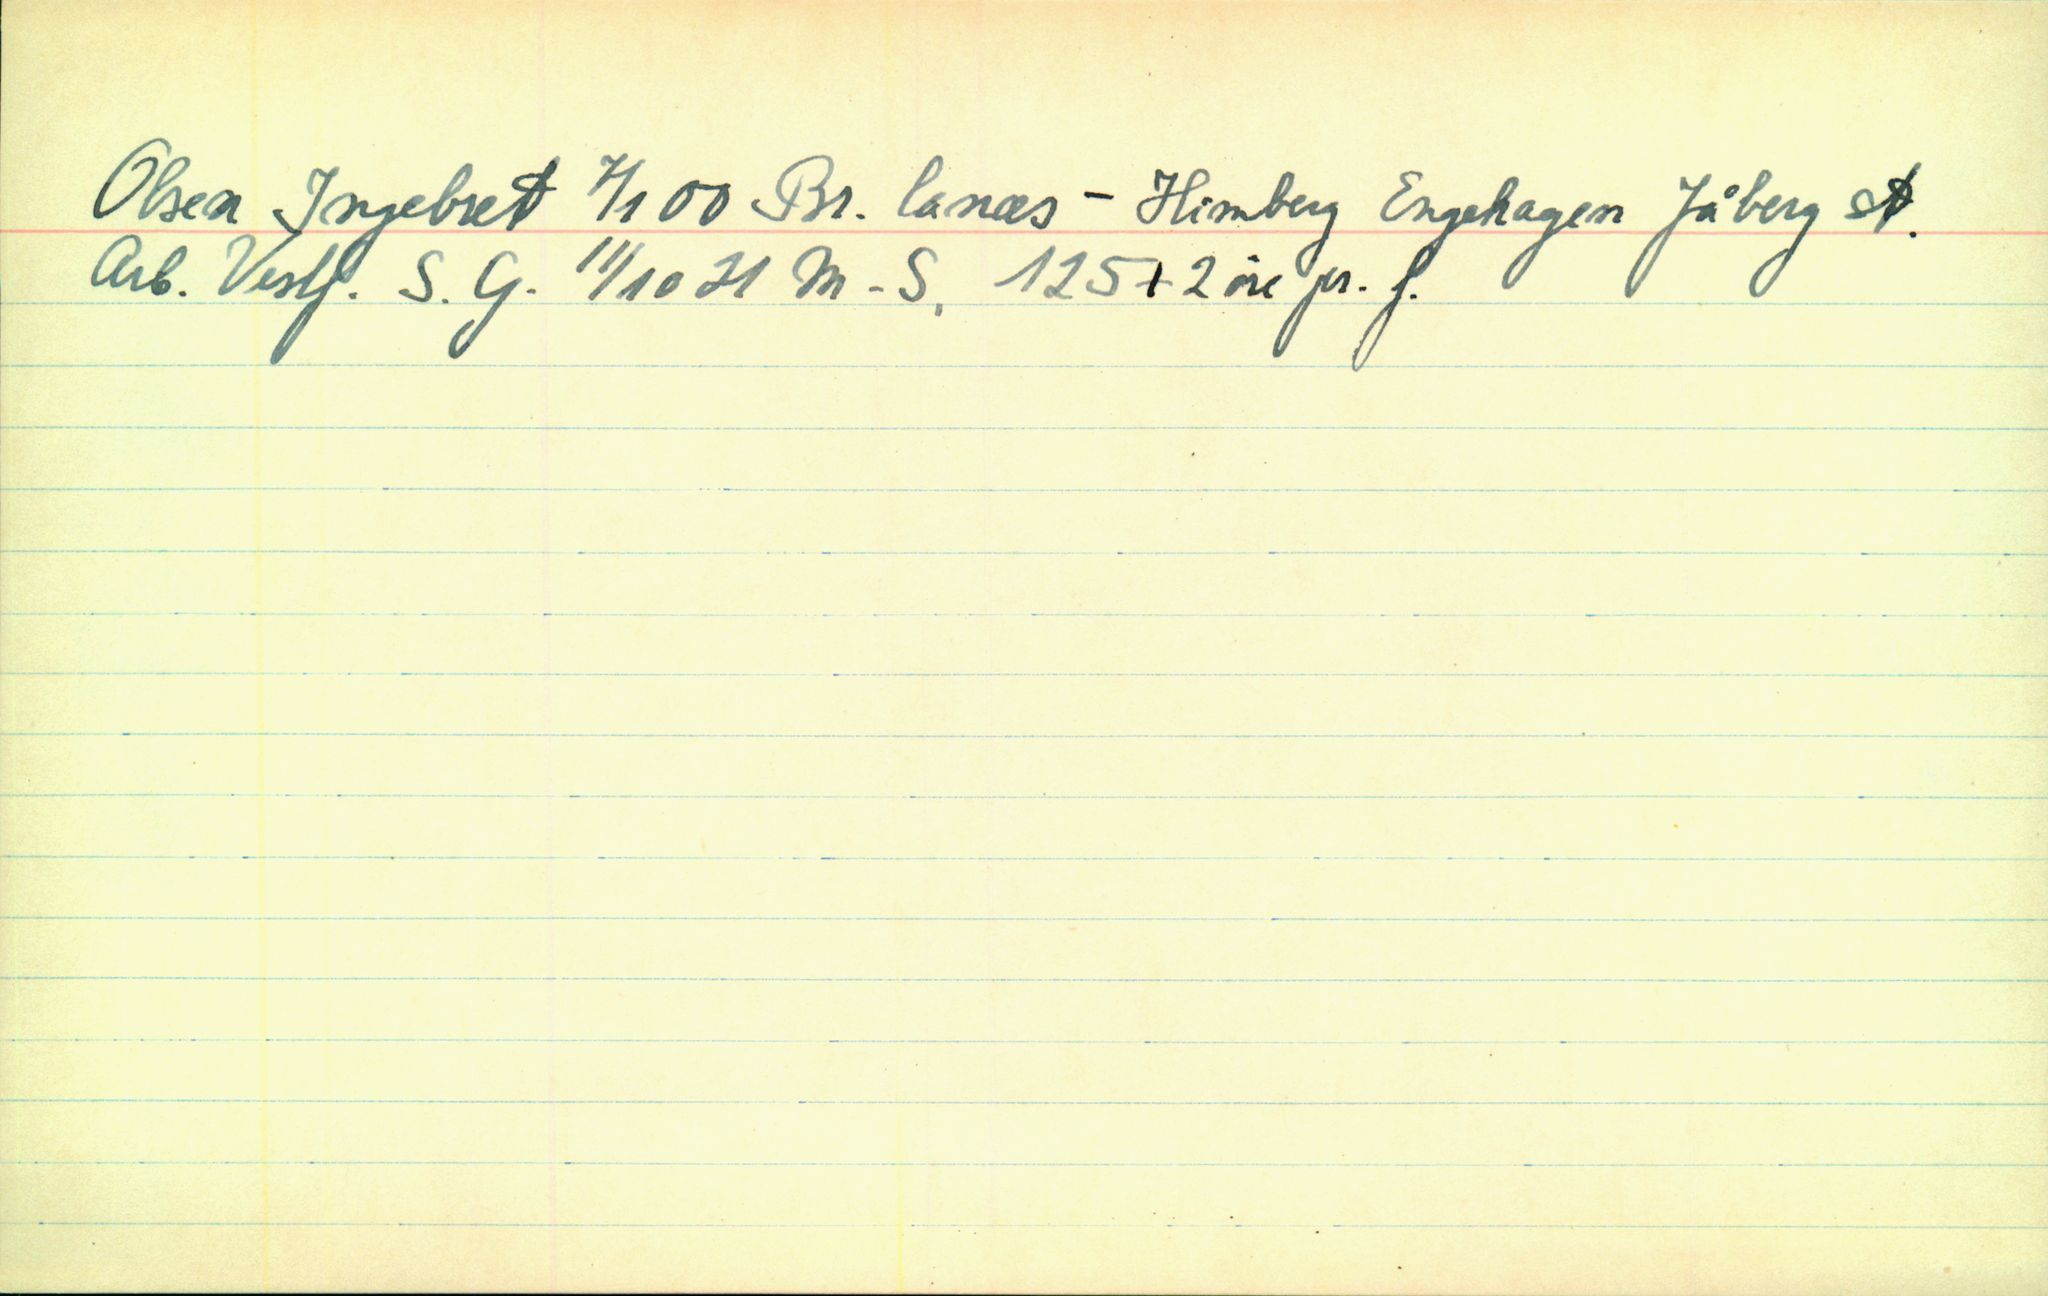 Olsen Ingebret 7/1 00 Br. lanæs - Himberg Engehagen Jåberg st.
Arb. Vestf. S. G. 11/10 21 M - S, 125 + 2 øre pr. f.